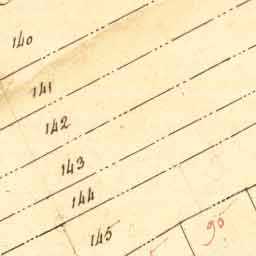 140
141
142
143
144
145
95